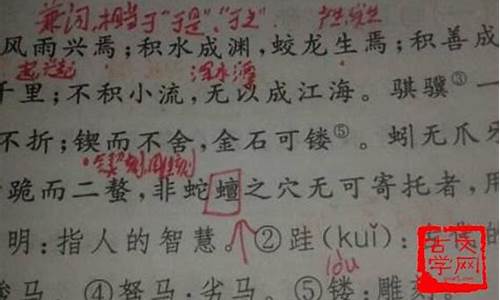 兼词,相当于“于是”、“于之”
风雨兴焉;积水成渊,蛟龙生焉;积善成
起兴起 深水潭
千里;不积小流,无以成江海。骐骥③一
不折;锲而不舍,金石可镂⑤。蚓无爪牙
跪而二螯,非蛇蟺之穴无可寄托者,用
明:指人的智慧。②跬(kuǐ):古代的
lòu
骏马。④驽马:劣马。⑤镂:雕刻
古文学网